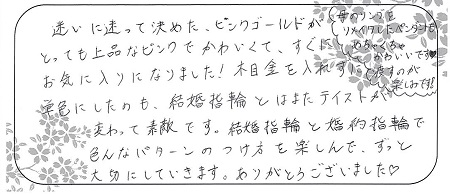 迷いに迷って決めた、ピンクゴールドが
とっても上品なピンクでかわいくて、すぐに
お気に入りになりました！木目金を入れずに
単色にしたのも、結婚指輪とはまたテイストが
変わって素敵です。結婚指輪と婚約指輪で
色んなパターンのつけ方を楽しんで、ずっと
大切にしていきます。ありがとうございました♡
母のリングを
リメイクしたペンダントも
めちゃくちゃ
かわいいです♥
のが
楽しみです!!